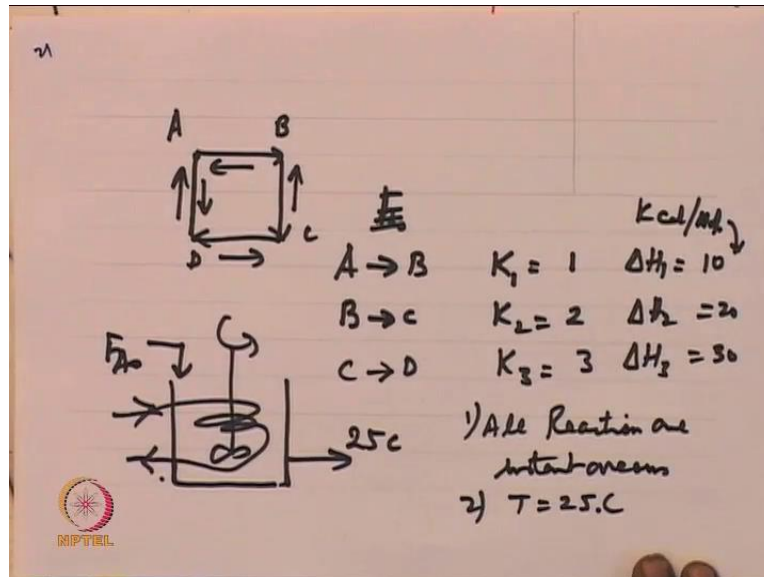 A B
D C
Kcal/mol.
A → B K₁ = 1 ΔH₁ = 10
B → C K₂ = 2 ΔH₂ = 20
C → D K₃ = 3 ΔH₃ = 30
F_A₀
25C
1) All Reaction are
instantaneous
2) T = 25.C
NPTEL